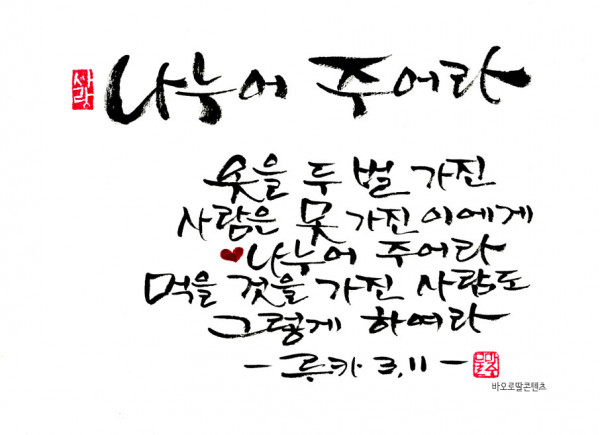 사랑
나누어 주어라
옷을 두 벌 가진
사람은 못 가진 이에게
나누어 주어라
먹을 것을 가진 사람도
그렇게 하여라
- 루카 3,11 -
바오로딸콘텐츠